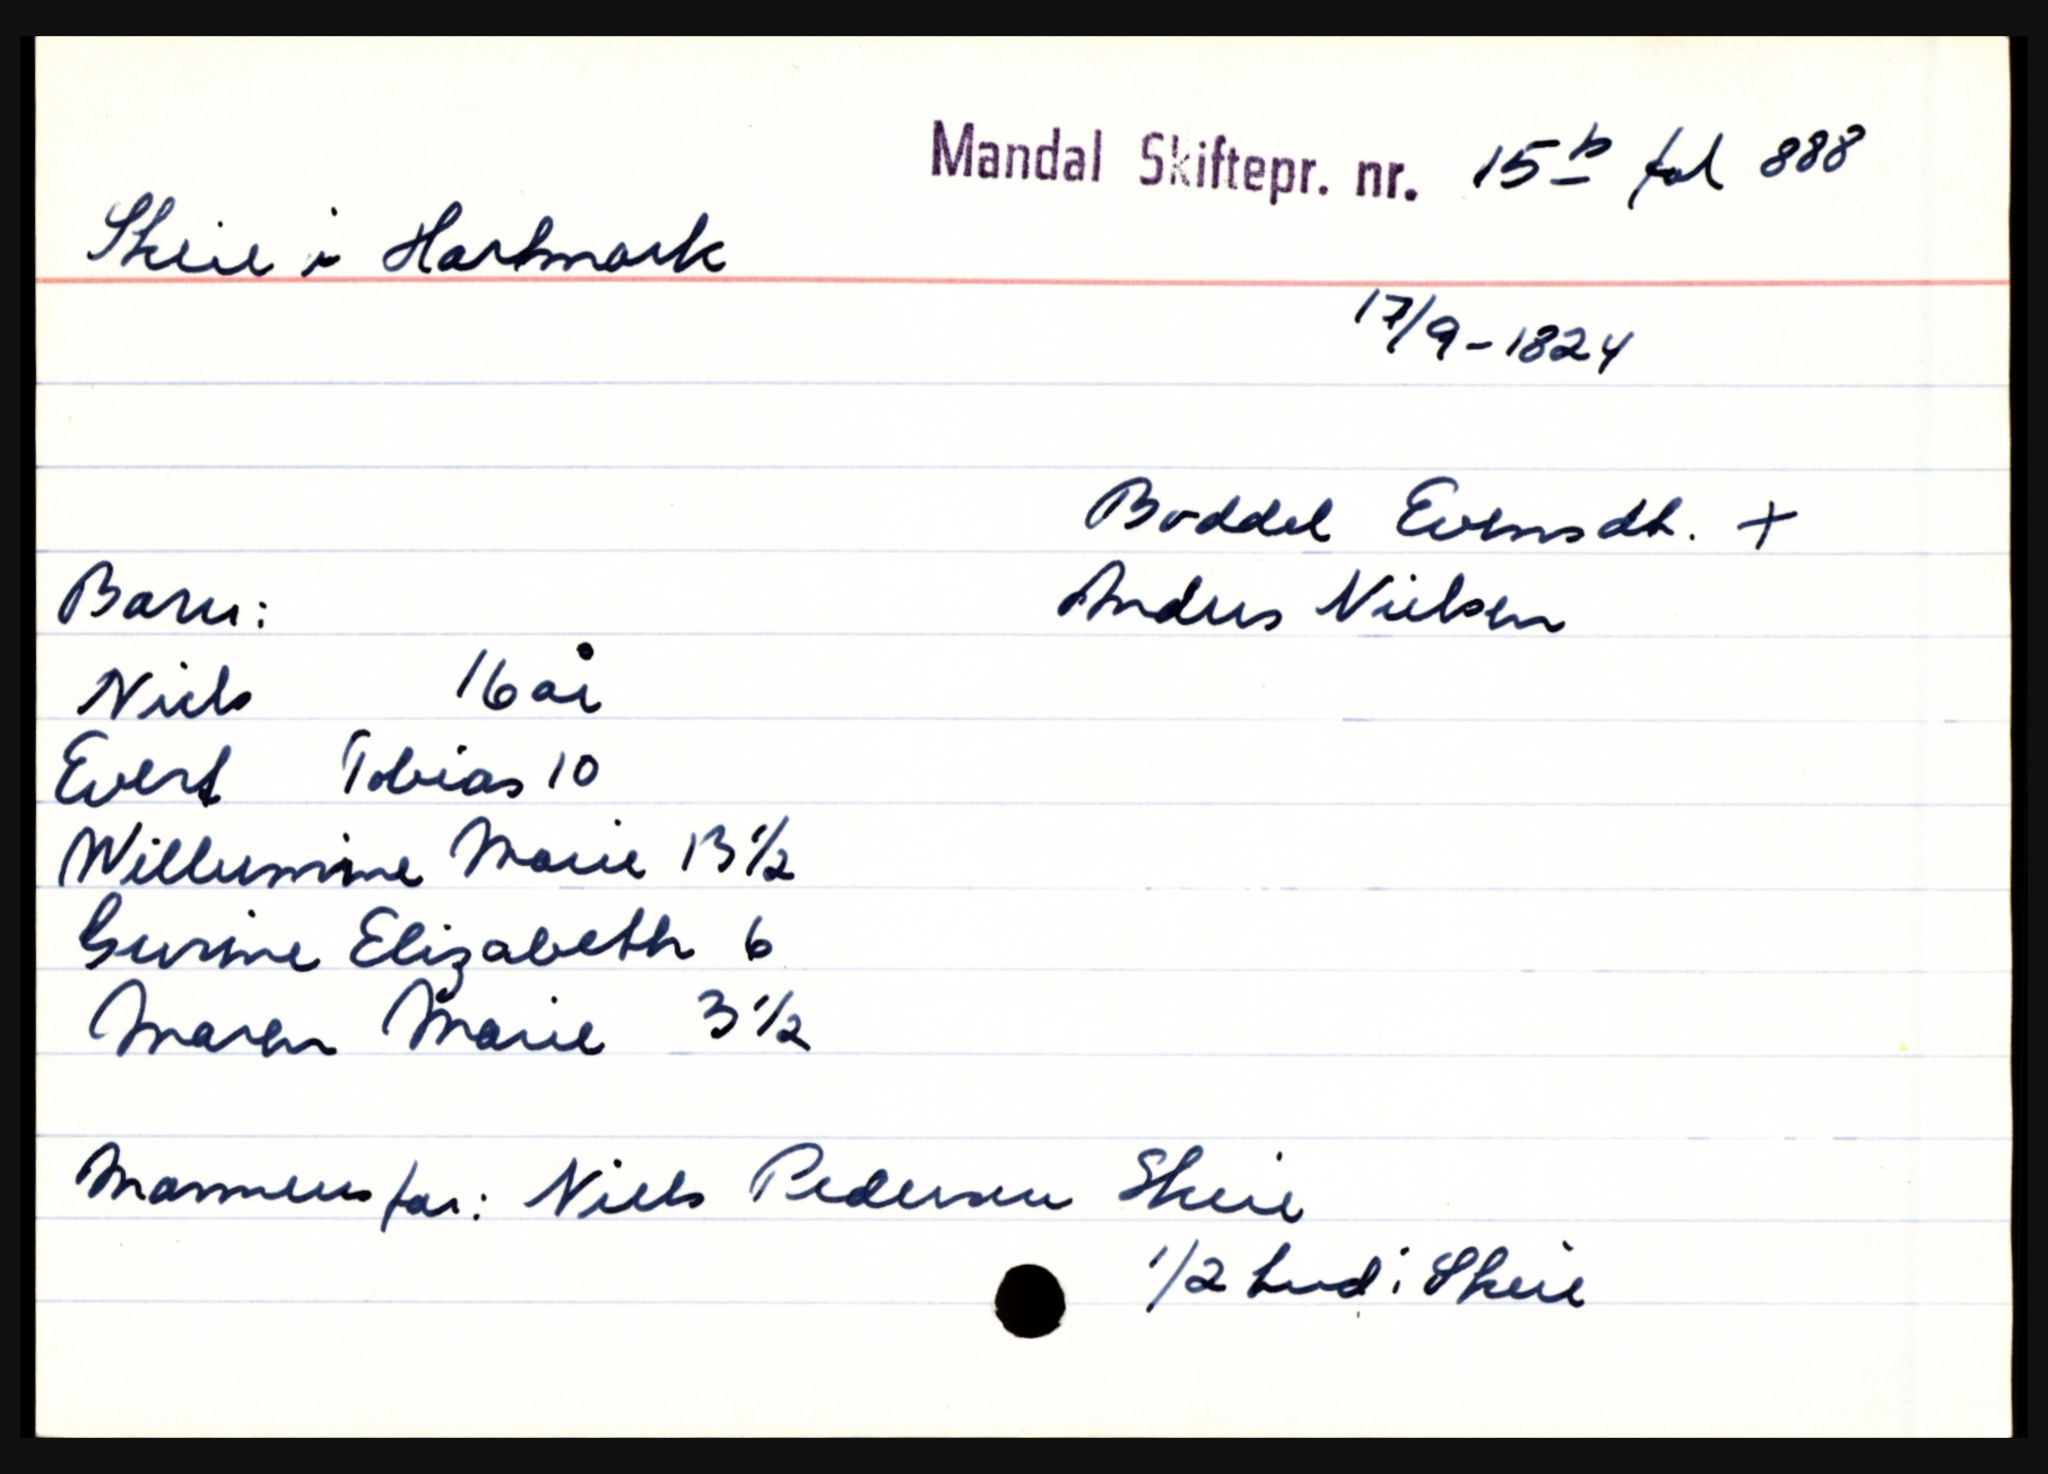 Mandal Skiftepr. nr. 15 b fol 888
Skeie i Hartmark
17/9-1824
Boddel Evensdt. +
Barn:
Anders Nielsen
Niels 16 år
Evert Tobias 10
Willumine Marie 13 1/2
Gurine Elizabeth 6
Maren Marie 3 1/2
Mannens far: Niels Pedersen Skeie
1/2 hud i Skeie